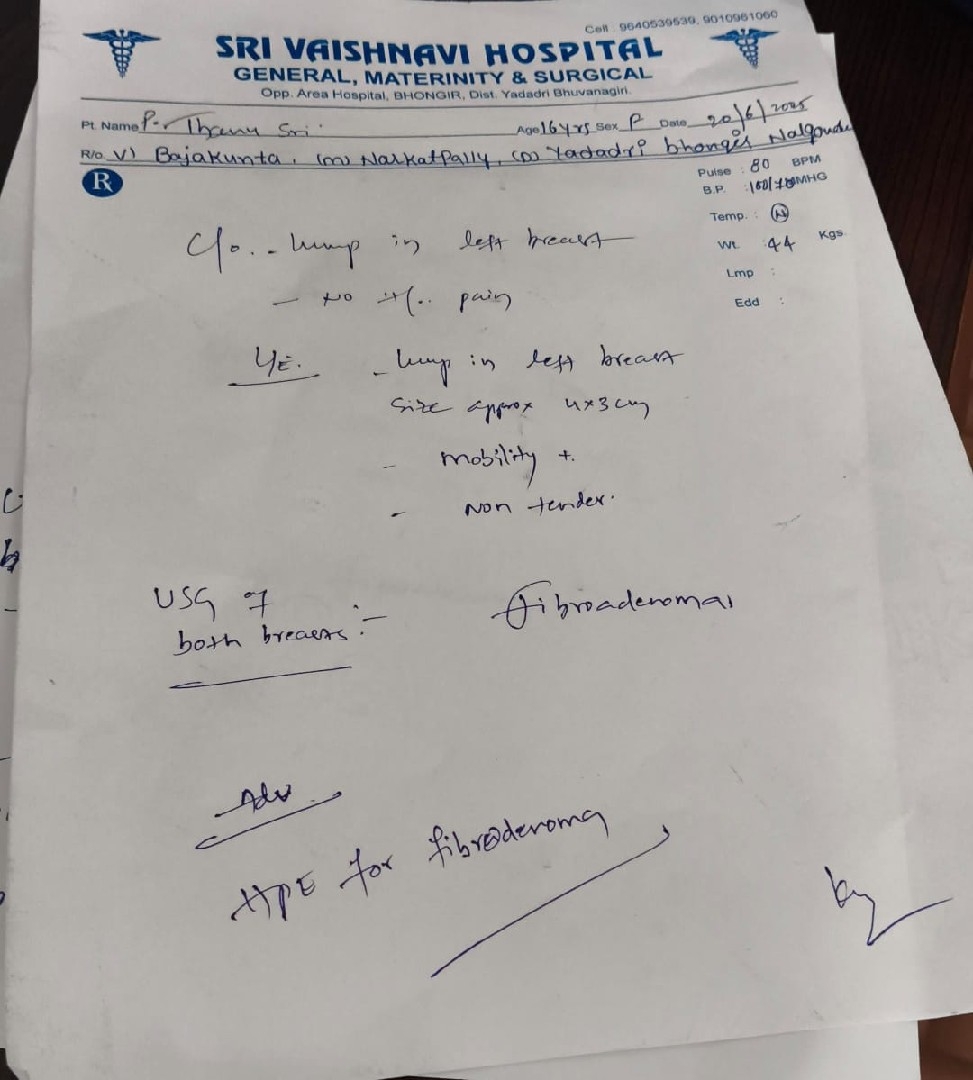 Cell : 9640539539, 9010961060
SRI VAISHNAVI HOSPITAL
GENERAL, MATERINITY & SURGICAL
Opp. Area Hospital, BHONGIR, Dist. Yadadri Bhuvanagiri.
Pt. Name P. Thanu Sri Age 16 yrs Sex F Date 20/6/2025
R/o V) Bajakunta, (m) Narkatpally, (D) Yadadri bhongir Nalgonda
Rx
Pulse : 80 BPM
B.P. : MHG
Temp. : N
Wt. : 44 Kgs.
Lmp :
Edd :
C/o. - lump in left breast
- No H/o. pain
- lump in left breast
Size approx 4x3 cm
- mobility +.
- Non tender.
USG of
both breasts :- fibroadenoma
Adv
HPE for fibroadenoma